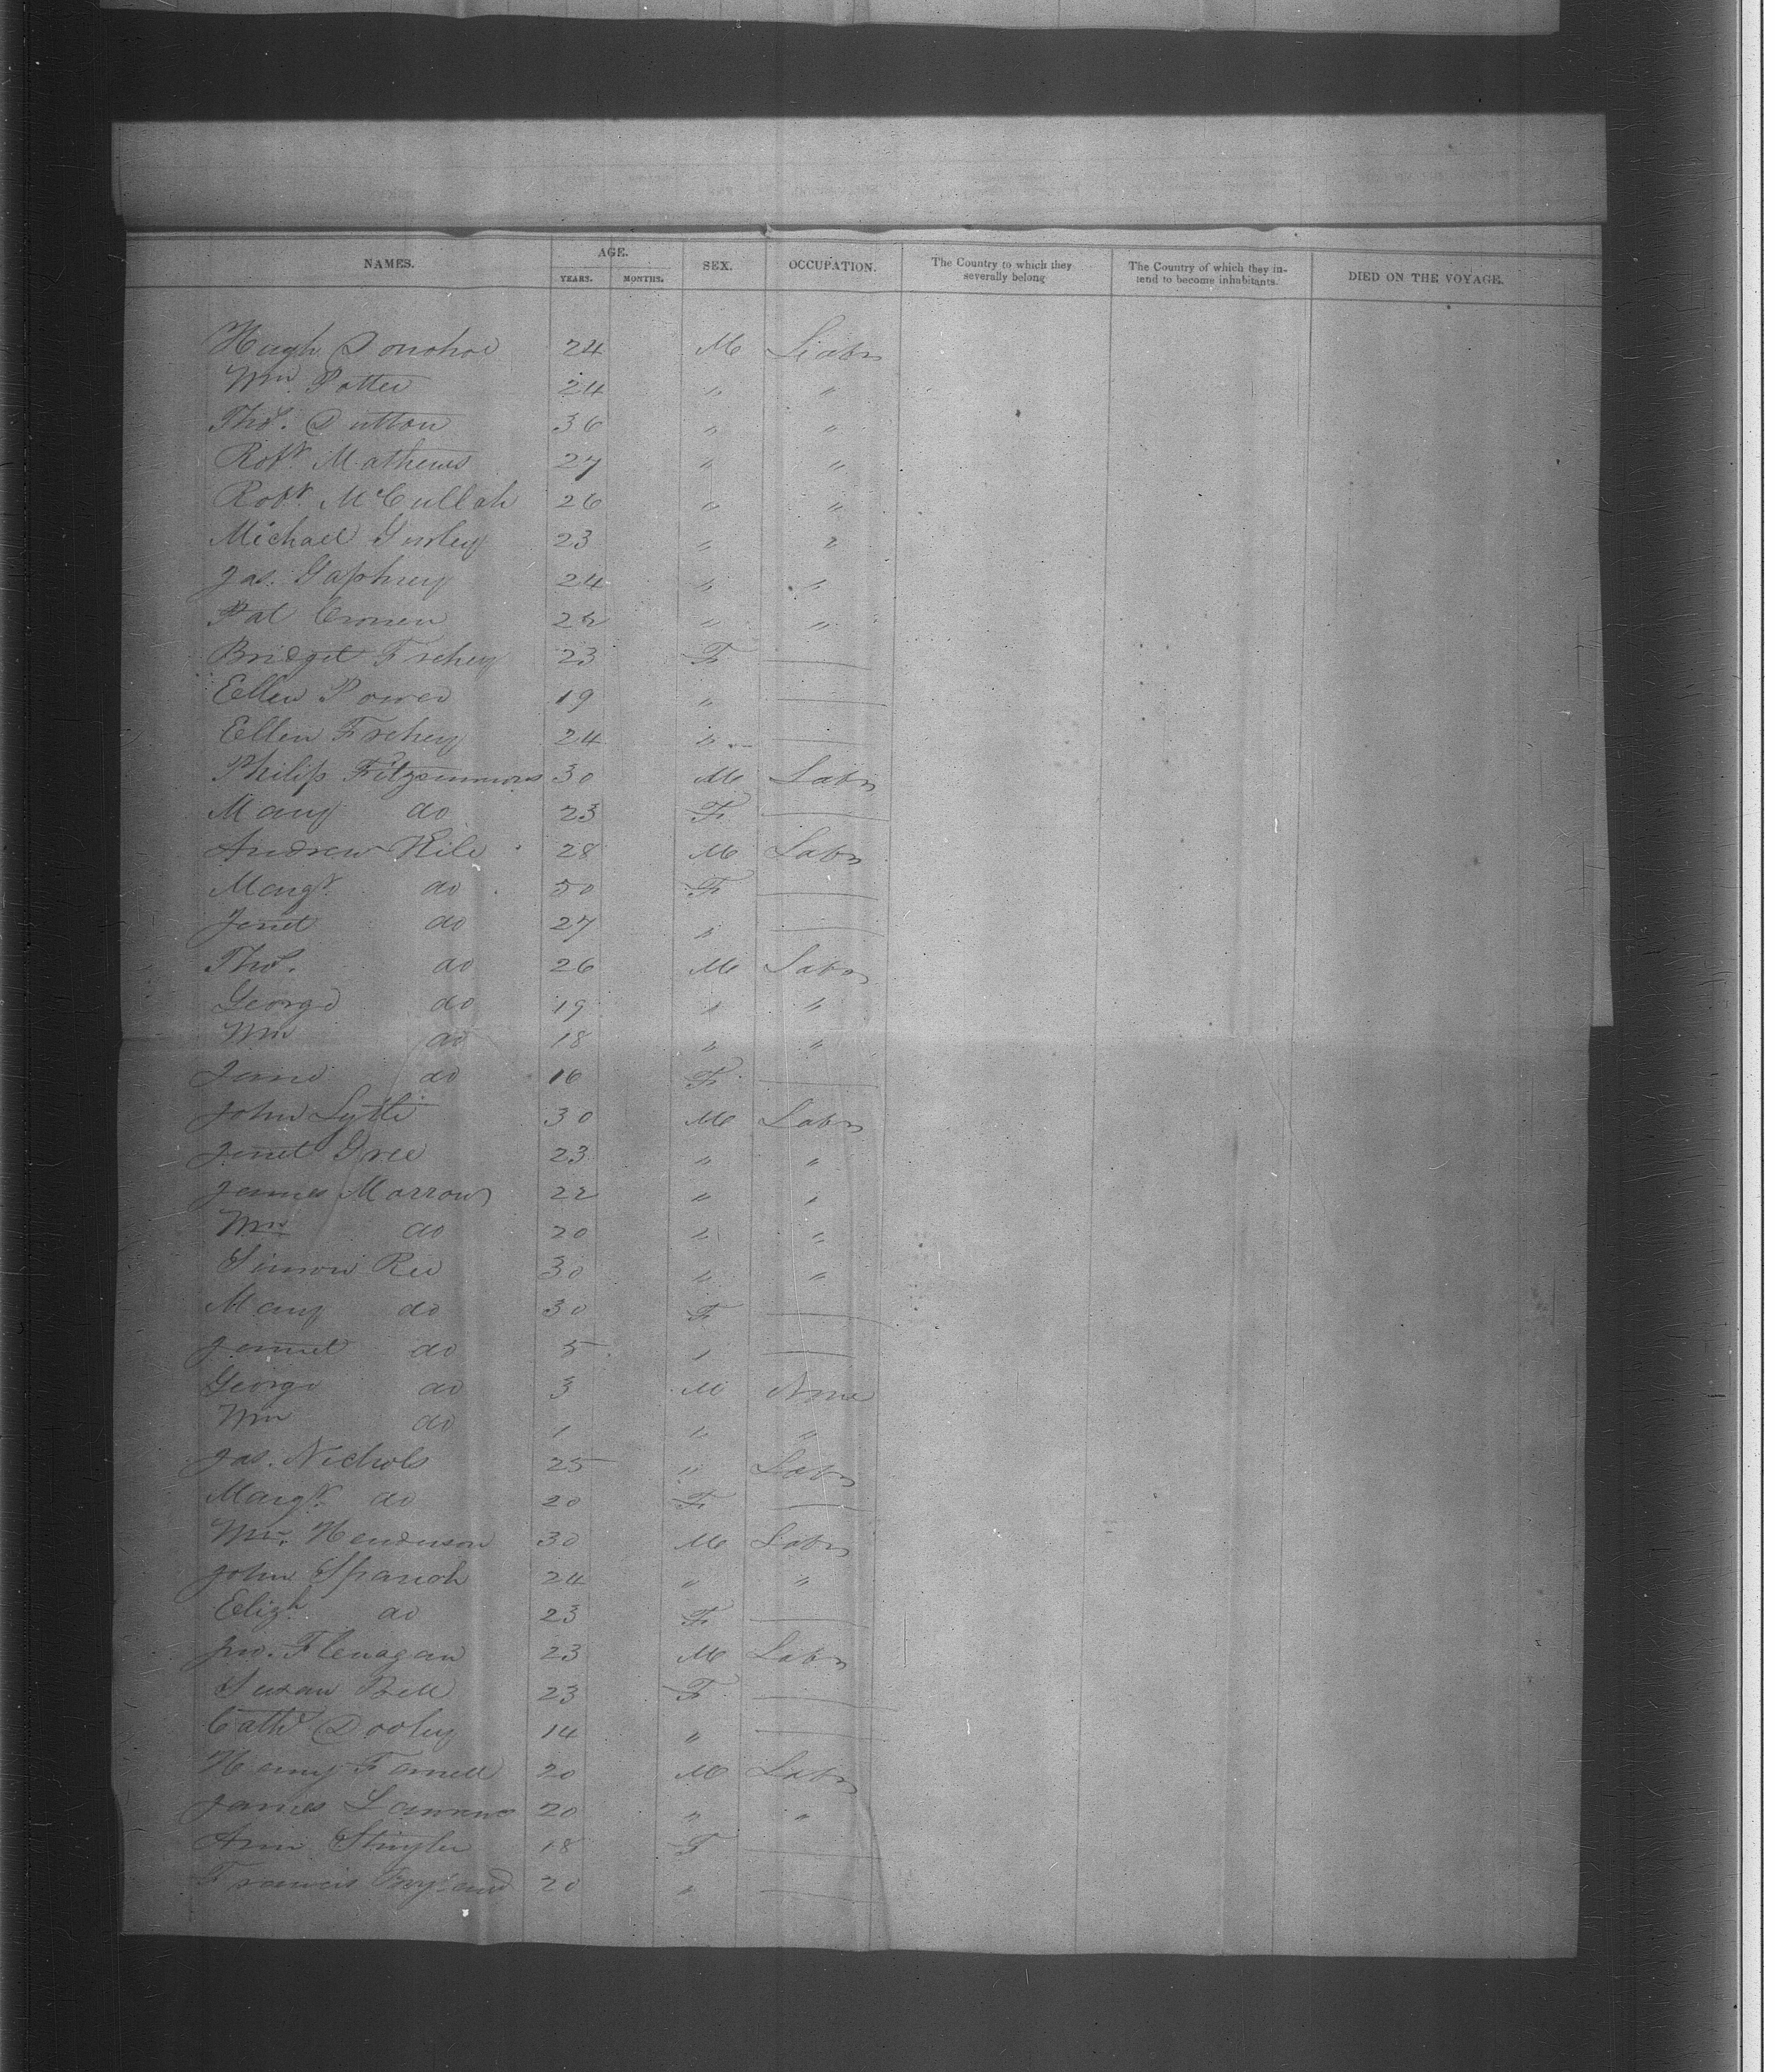 NAMES. AGE. YEARS. MONTHS. SEX. OCCUPATION. The Country to which they severally belong The Country of which they intend to become inhabitants. DIED ON THE VOYAGE.
Hugh Donohoe 24 M Labr
Wm Potter 24 " "
Thos. Dutton 36 " "
Robt. Mathews 27 " "
Robt. McCullah 26 " "
Michael 23 " "
Jas. Gaphney 24 " "
Pat Cronen " "
Bridget Frehey 23 F —
Ellen Power 19 " —
Ellen Frehey 24 " —
Philip Fitzsimmons 30 M Labr
Mary do 23 F —
Andrew Kile 28 M Labr
Margt. do 50 F —
Jennet do 27 " —
Thos. do 26 M Labr
George do 19 " "
Wm do 18 " "
Jane do 16 F —
John Lytle 30 M Labr
Jennet Gree 23 " "
James Morrow 22 " "
Wm do 20 " "
Simon Ree 30 " "
Mary do 30 F —
Jennet do 5 " —
George do 3 M None
Wm do 1 " "
Jas. Nichols 25 " Labr
Margt. do 20 F —
Wm. Henderson 30 M Labr
John 24 " "
Elizh do 23 F —
Jno. Flenagan 23 M Labr
Susan Bell 23 F —
Cathe Dooley 14 " —
Henry Farrell 20 M Labr
James 20 " "
Ann 18 F —
Francis 20 " —